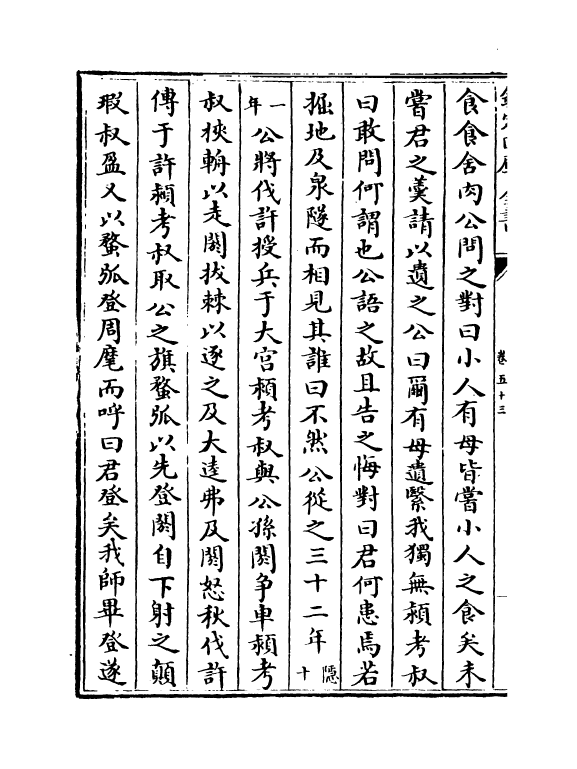 欽定四庫全書
卷五十三
食食舍肉公問之對曰小人有母皆嘗小人之食矣未
嘗君之羹請以遺之公曰爾有母遺繄我獨無潁考叔
曰敢問何謂也公語之故且告之悔對曰君何患焉若
掘地及泉隧而相見其誰曰不然公從之三十二年隱十
一年公將伐許授兵于大宮潁考叔與公孫閼争車潁考
叔挾輈以走閼拔棘以逐之及大逵弗及閼怒秋伐許
傅于許潁考叔取公之旗蝥弧以先登閼自下射之顛
瑕叔盈又以蝥弧登周麾而呼曰君登矣我師畢登遂